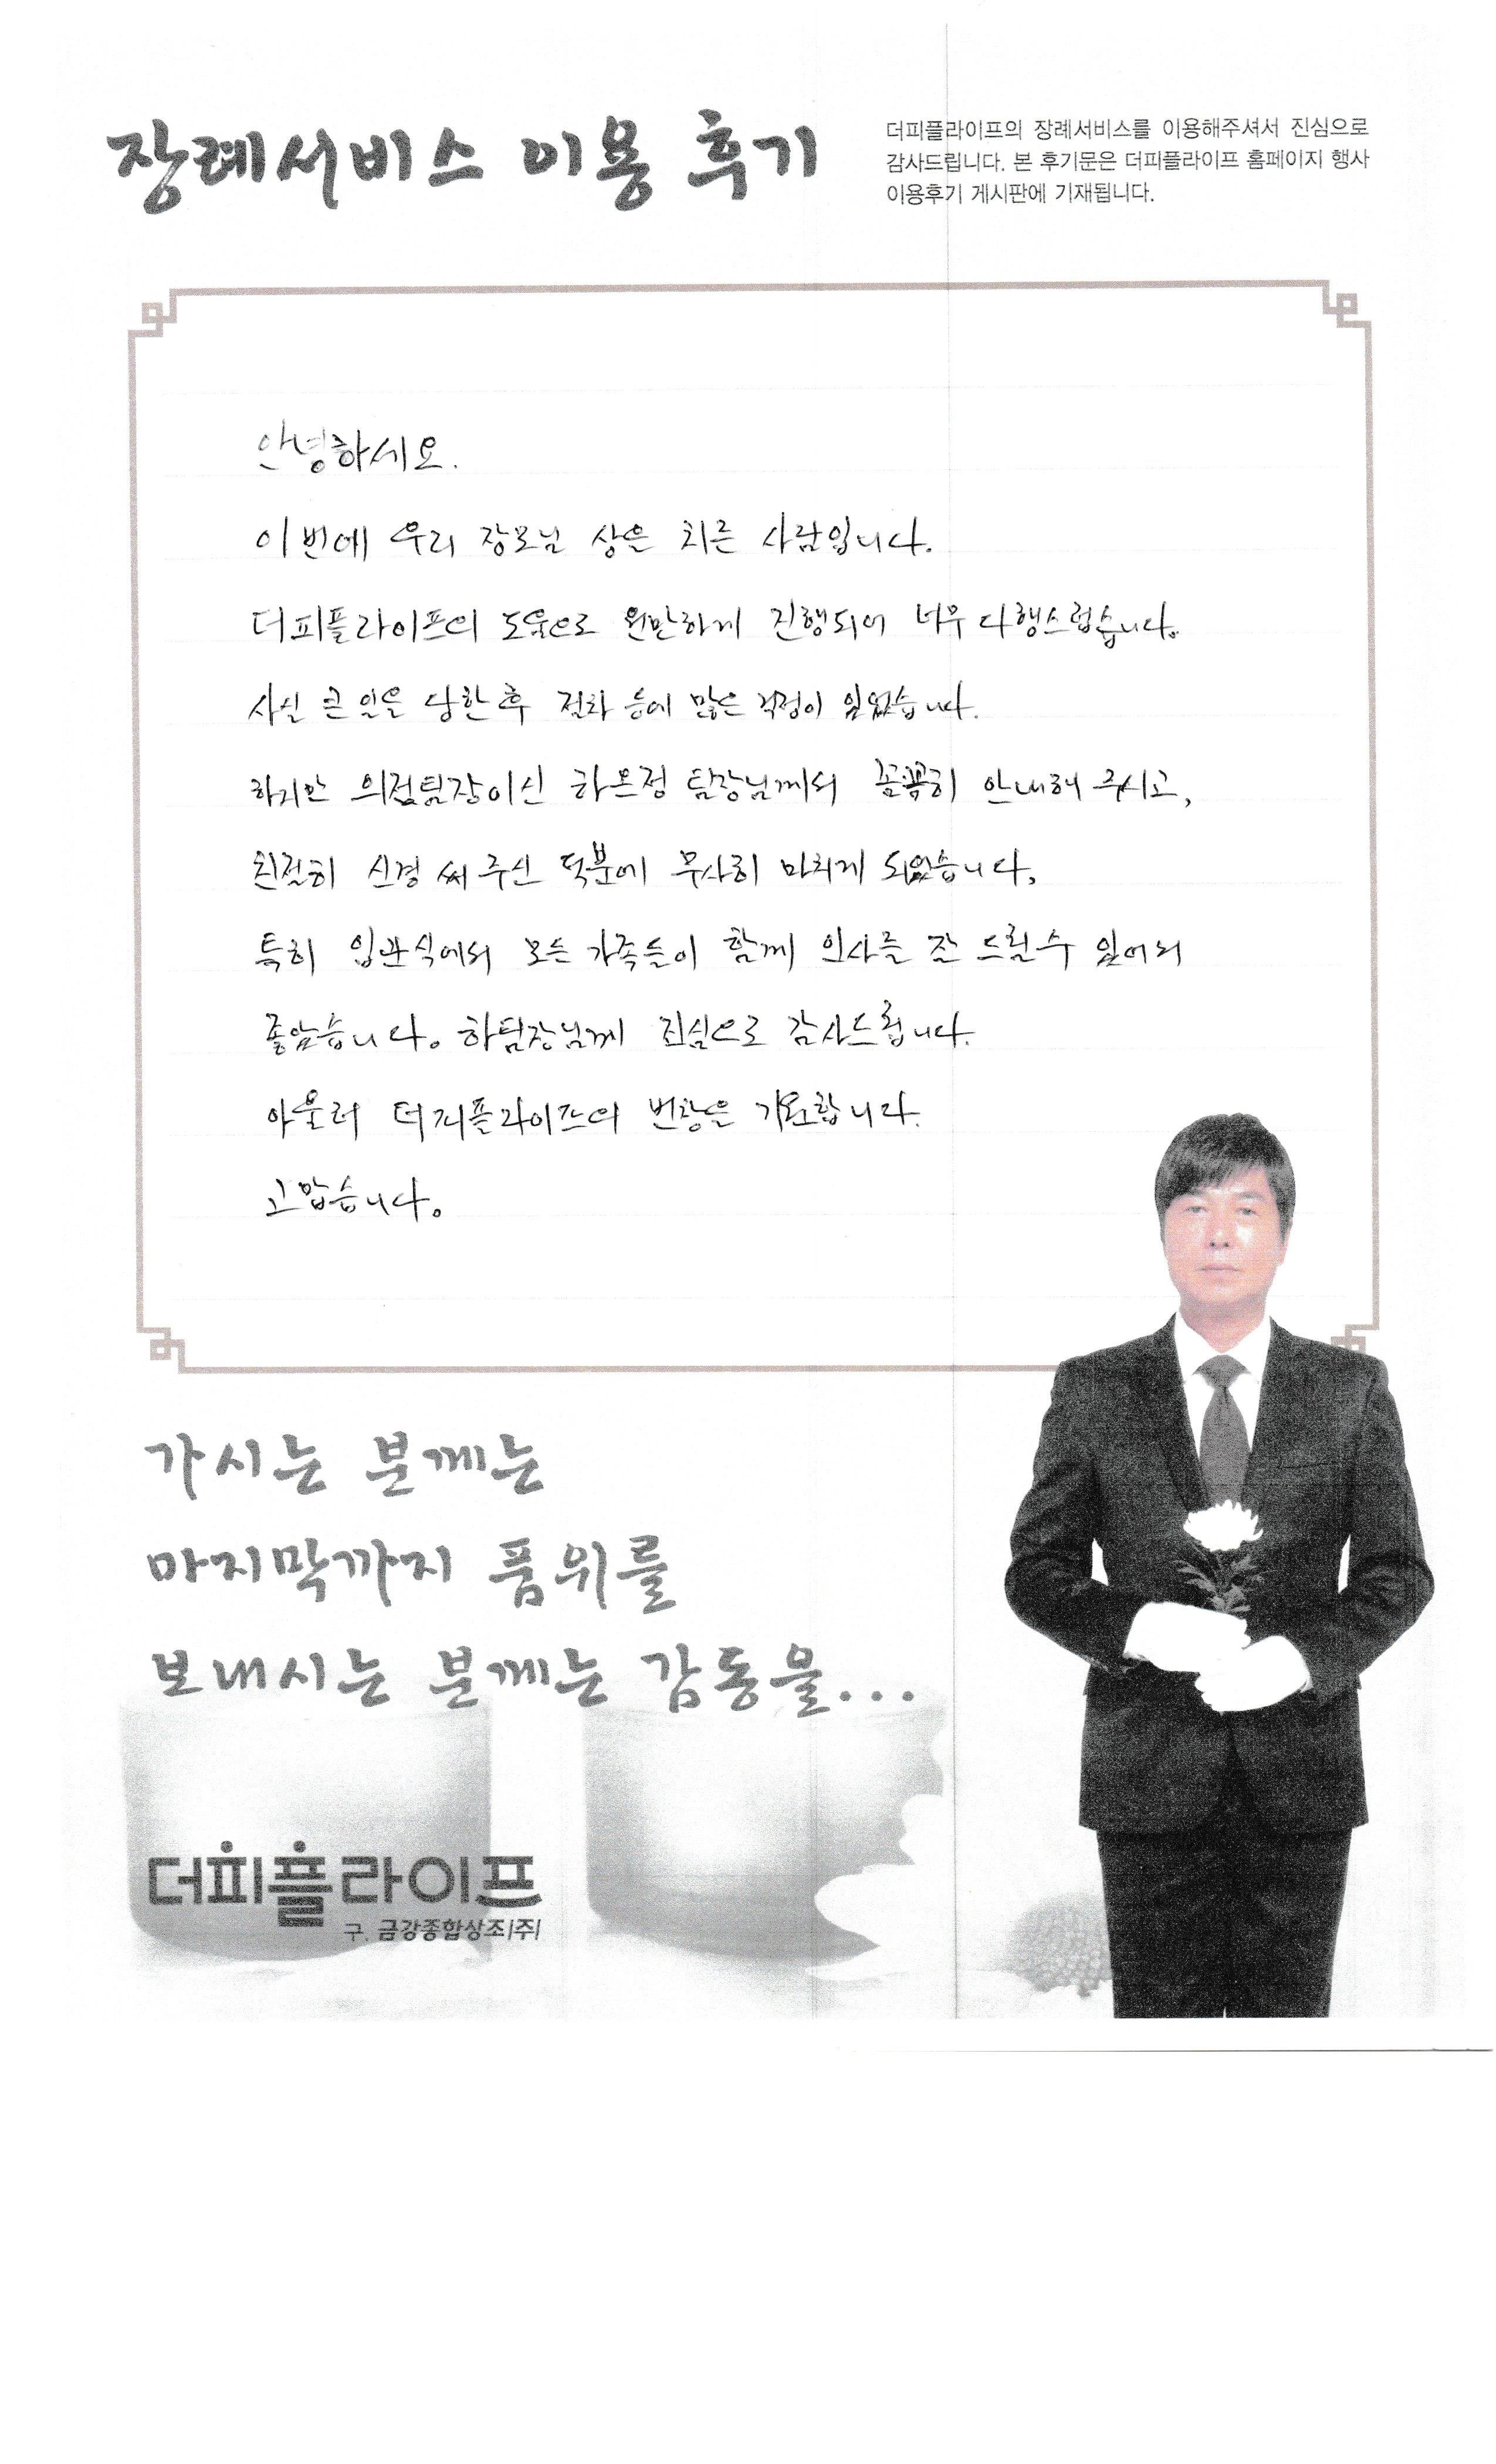 장례서비스 이용 후기
더피플라이프의 장례서비스를 이용해주셔서 진심으로
감사드립니다. 본 후기문은 더피플라이프 홈페이지 행사
이용후기 게시판에 기재됩니다.
안녕하세요.
이번에 우리 장모님 상을 치른 사람입니다.
더피플라이프의 도움으로 원만하게 진행되어 너무 다행스럽습니다.
사실 큰 일을 당한 후 절차 등에 많은 걱정이 있었습니다.
하지만 의전팀장이신 하은정 팀장님께서 꼼꼼히 안내해 주시고,
친절히 신경 써 주신 덕분에 무사히 마치게 되었습니다.
특히 입관식에서 모든 가족들이 함께 인사를 잘 드릴수 있어서
좋았습니다. 하팀장님께 진심으로 감사드립니다.
아울러 더피플라이프의 번창을 기원합니다.
고맙습니다.
가시는 분께는
마지막까지 품위를
보내시는 분께는 감동을...
더피플라이프
구. 금강종합상조(주)